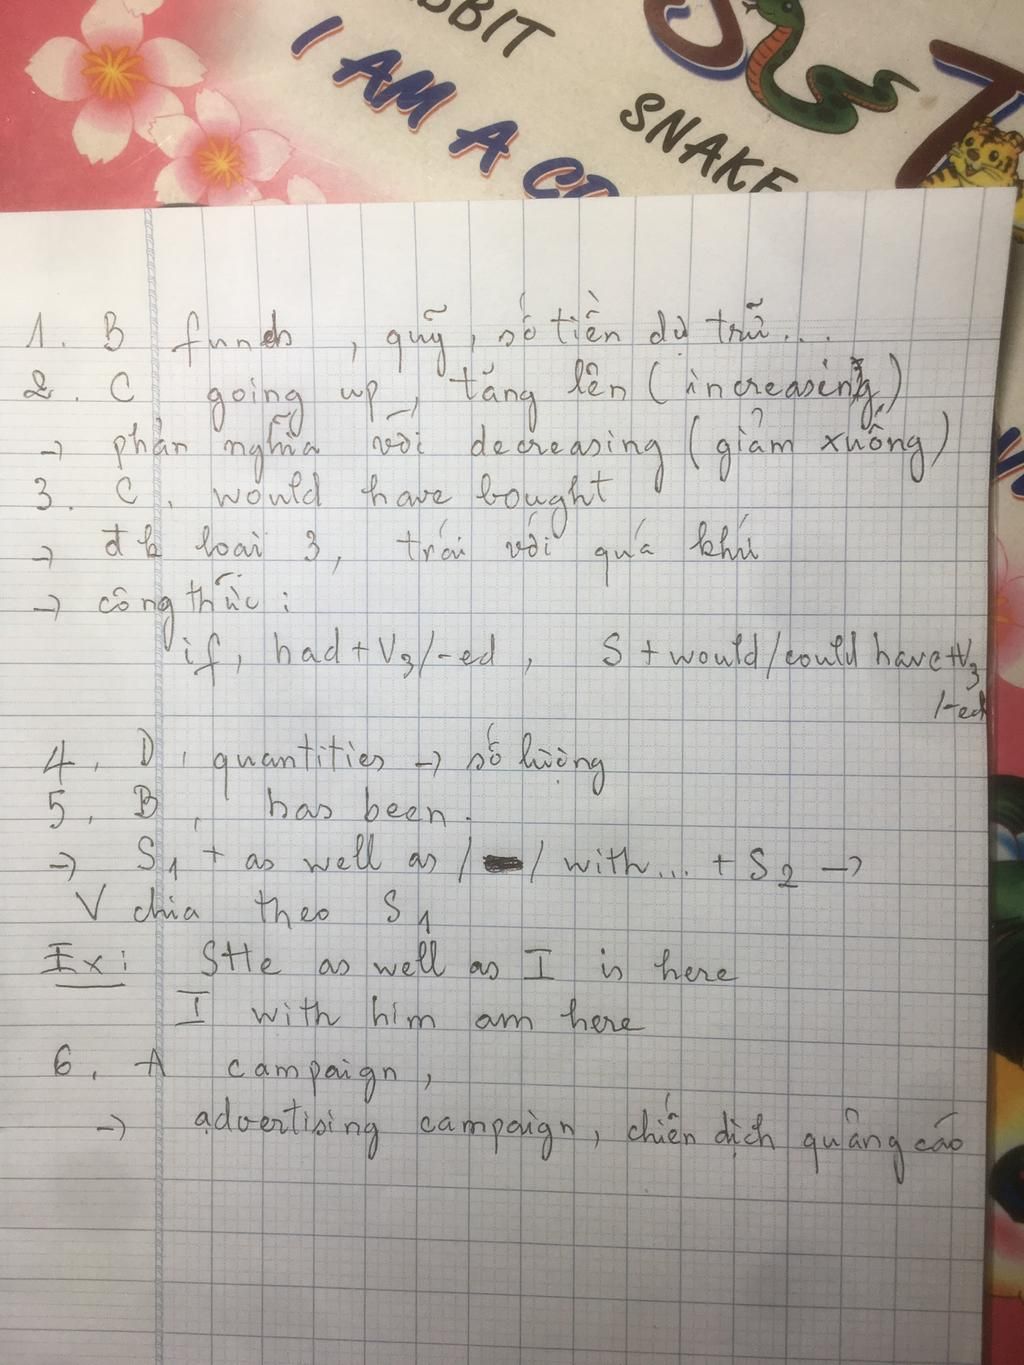 BBIT
I AM A
SNAKE
1. B funds, quỹ, số tiền dự trữ...
2. C going up, tăng lên (increasing)
→ phản nghĩa với decreasing (giảm xuống)
3. C, would have bought
→ đk loại 3, trái với quá khứ
→ công thức:
if, had + V3/-ed, S + would/could have + V3
/-ed
4, D, quantities → số lượng
5, B, has been.
→ S1 + as well as / / with... + S2 →
V chia theo S1
Ex: She as well as I is here
I with him am here
6, A campaign,
→ advertising campaign, chiến dịch quảng cáo